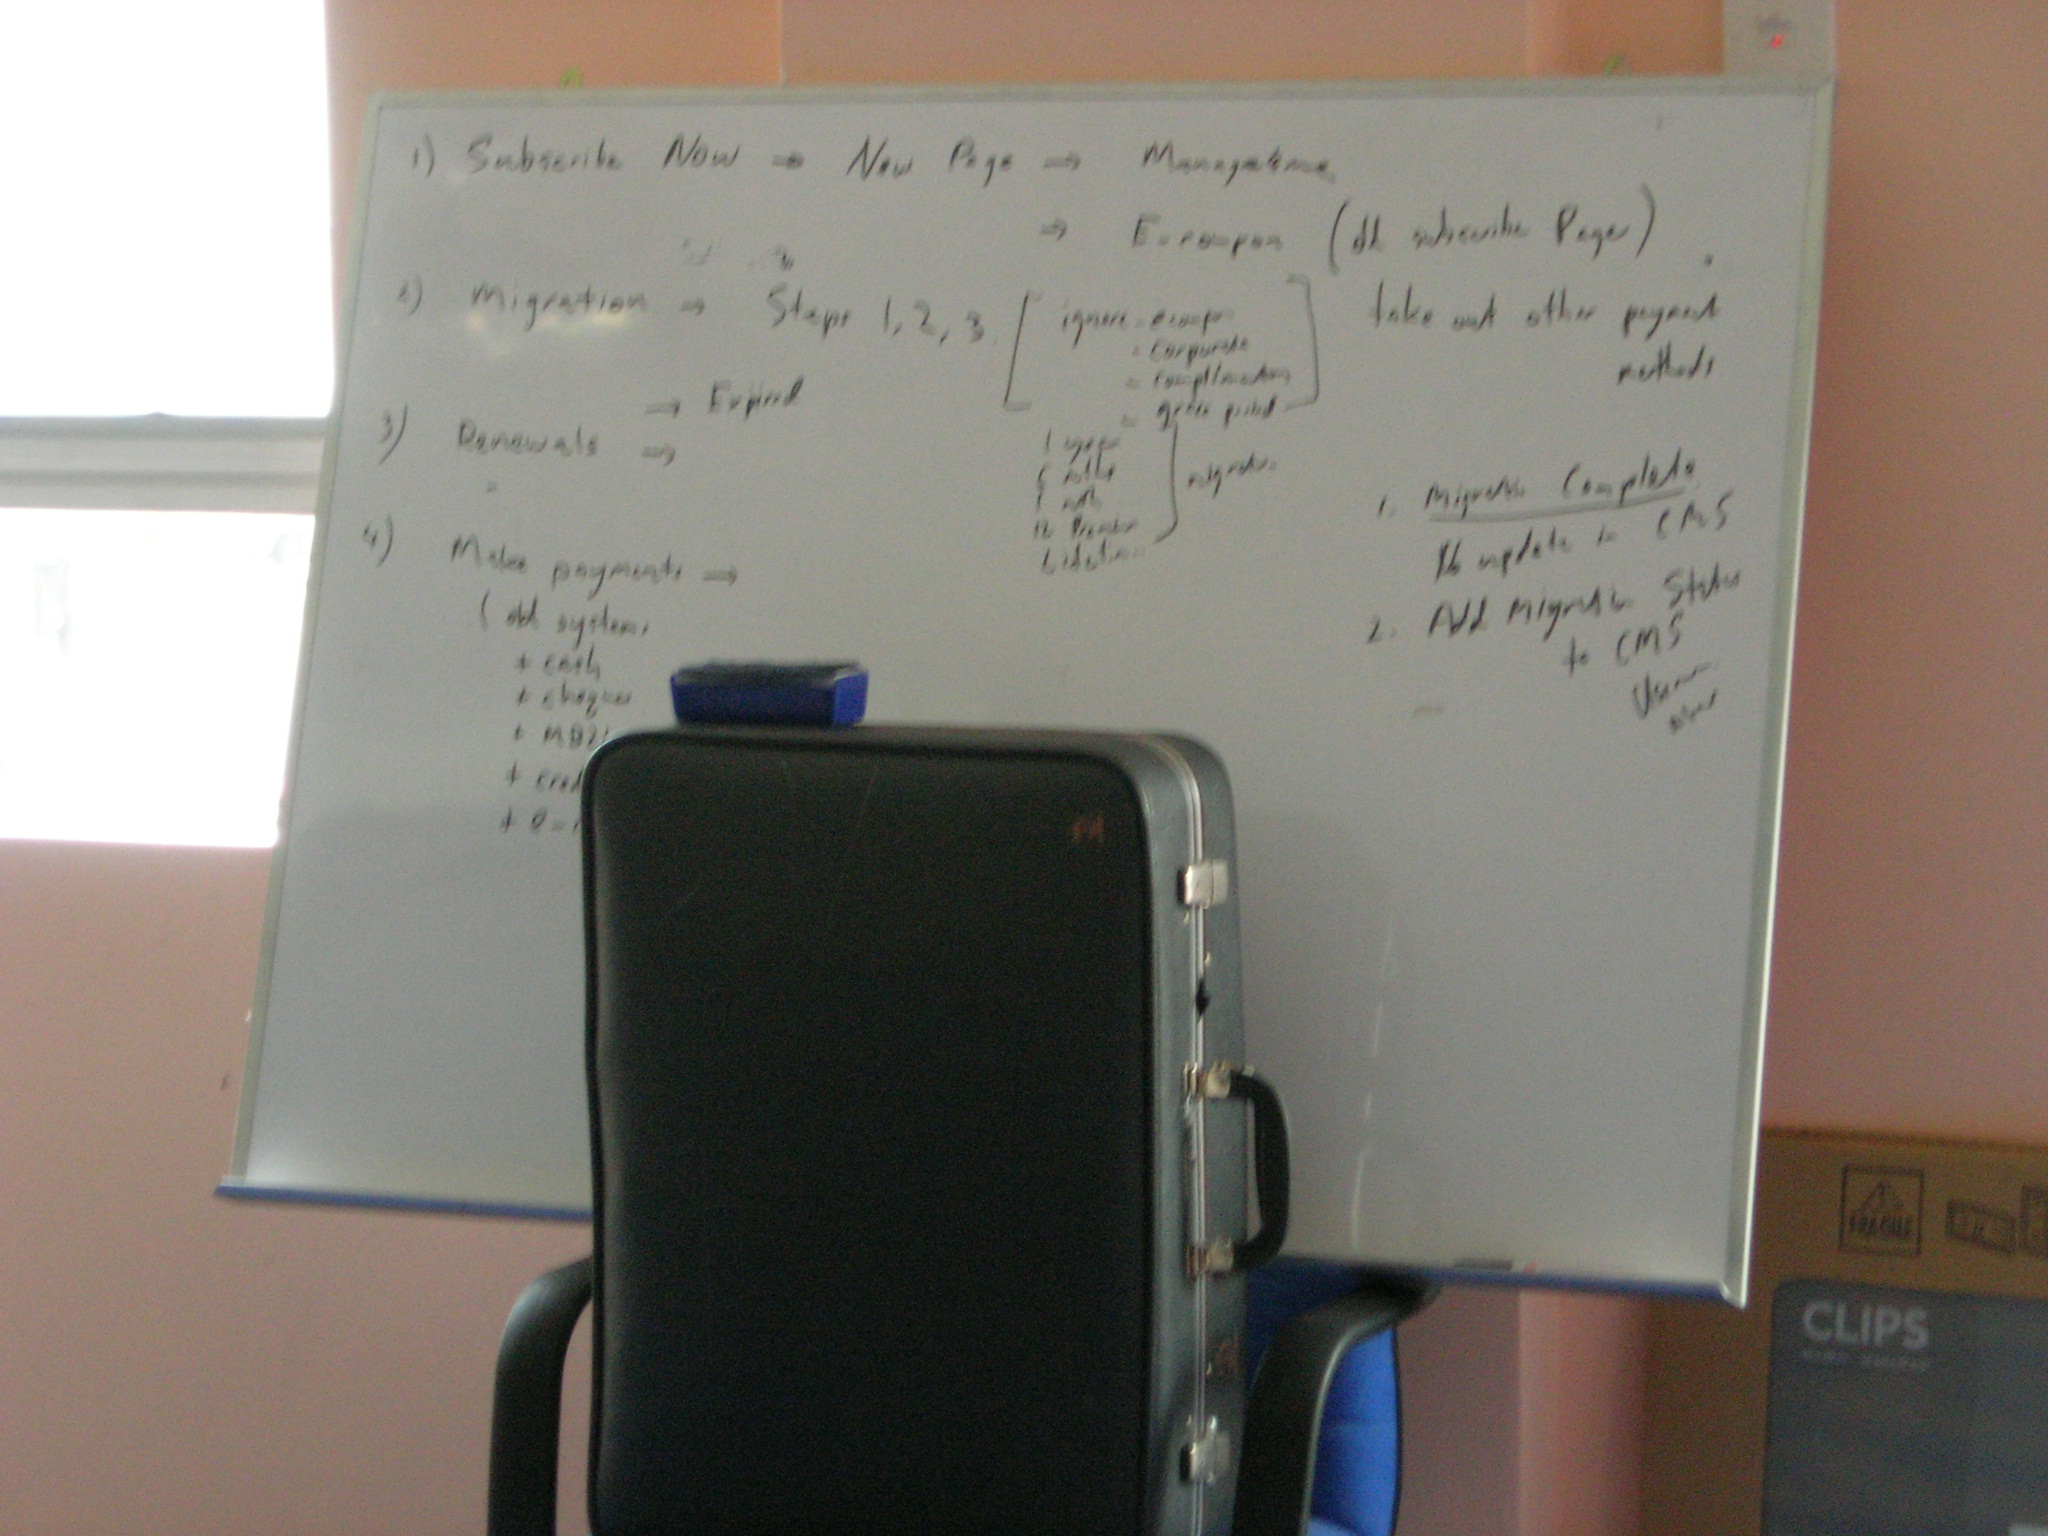 1) Subscribe Now → New Page →
→ E-coupon (old subscribe Page)
2) Migration → Steps 1, 2, 3
ignore - ecoupon
- corporate
- complimentary
- grace period
take out other payment
methods
→ Expired
3) Renewals →
1 year
migration
4) Make payments →
(old system,
+ cash
+ cheques
+ MB2
+ cred
1. Migration Complete
to update in CMS
2. Add Migration Status
to CMS
FRAGILE
CLIPS